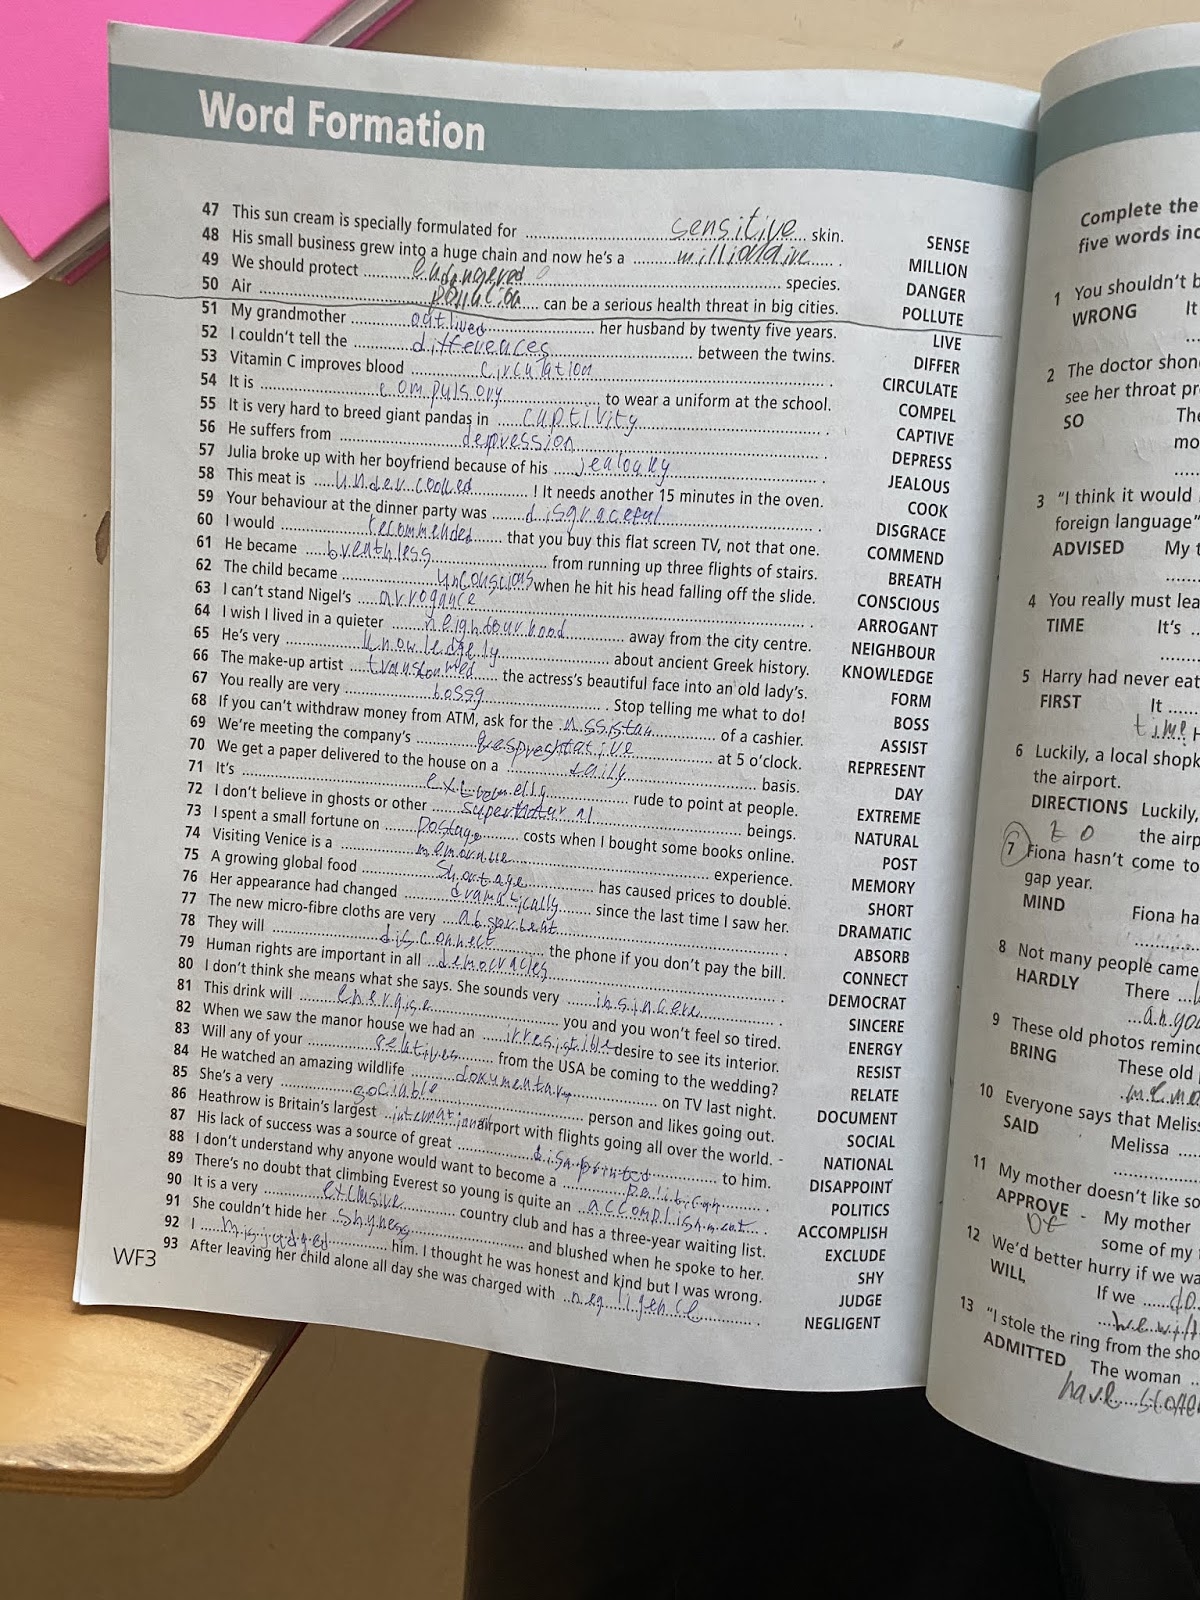 Word Formation
47 This sun cream is specially formulated for sensitive skin. SENSE
48 His small business grew into a huge chain and now he's a millionaire. MILLION
49 We should protect endangered species. DANGER
50 Air pollution can be a serious health threat in big cities. POLLUTE
51 My grandmother outlived her husband by twenty five years. LIVE
52 I couldn't tell the differences between the twins. DIFFER
53 Vitamin C improves blood circulation. CIRCULATE
54 It is compulsory to wear a uniform at the school. COMPEL
55 It is very hard to breed giant pandas in captivity. CAPTIVE
56 He suffers from depression. DEPRESS
57 Julia broke up with her boyfriend because of his jealousy. JEALOUS
58 This meat is undercooked! It needs another 15 minutes in the oven. COOK
59 Your behaviour at the dinner party was disgraceful. DISGRACE
60 I would recommended that you buy this flat screen TV, not that one. COMMEND
61 He became breathless from running up three flights of stairs. BREATH
62 The child became unconscious when he hit his head falling off the slide. CONSCIOUS
63 I can't stand Nigel's arrogance. ARROGANT
64 I wish I lived in a quieter neighbourhood away from the city centre. NEIGHBOUR
65 He's very about ancient Greek history. KNOWLEDGE
66 The make-up artist transformed the actress's beautiful face into an old lady's. FORM
67 You really are very bossy. Stop telling me what to do! BOSS
68 If you can't withdraw money from ATM, ask for the of a cashier. ASSIST
69 We're meeting the company's at 5 o'clock. REPRESENT
70 We get a paper delivered to the house on a daily basis. DAY
71 It's rude to point at people. EXTREME
72 I don't believe in ghosts or other supernatural beings. NATURAL
73 I spent a small fortune on postage costs when I bought some books online. POST
74 Visiting Venice is a experience. MEMORY
75 A growing global food shortage has caused prices to double. SHORT
76 Her appearance had changed dramatically since the last time I saw her. DRAMATIC
77 The new micro-fibre cloths are very . ABSORB
78 They will disconnect the phone if you don't pay the bill. CONNECT
79 Human rights are important in all democracies. DEMOCRAT
80 I don't think she means what she says. She sounds very insincere. SINCERE
81 This drink will energise you and you won't feel so tired. ENERGY
82 When we saw the manor house we had an irresistible desire to see its interior. RESIST
83 Will any of your from the USA be coming to the wedding? RELATE
84 He watched an amazing wildlife dokumentary on TV last night. DOCUMENT
85 She's a very sociable person and likes going out. SOCIAL
86 Heathrow is Britain's largest international airport with flights going all over the world. NATIONAL
87 His lack of success was a source of great to him. DISAPPOINT
88 I don't understand why anyone would want to become a . POLITICS
89 There's no doubt that climbing Everest so young is quite an accomplishment. ACCOMPLISH
90 It is a very exclusive country club and has a three-year waiting list. EXCLUDE
91 She couldn't hide her shyness and blushed when he spoke to her. SHY
92 I misjudged him. I thought he was honest and kind but I was wrong. JUDGE
93 After leaving her child alone all day she was charged with negligence. NEGLIGENT
WF3
Complete the
five words inc
1 You shouldn't b
WRONG It
2 The doctor shon
see her throat pr
SO The
mo
3 "I think it would
foreign language"
ADVISED My t
4 You really must lea
TIME It's
5 Harry had never eat
FIRST It
time H
6 Luckily, a local shopk
the airport.
DIRECTIONS Luckily,
to the airp
7 Fiona hasn't come to
gap year.
MIND Fiona ha
8 Not many people came
HARDLY There
9 These old photos remind
BRING These old
10 Everyone says that Meliss
SAID Melissa
11 My mother doesn't like so
APPROVE - My mother
of some of my
12 We'd better hurry if we wa
WILL If we
13 "I stole the ring from the sho
ADMITTED The woman
have